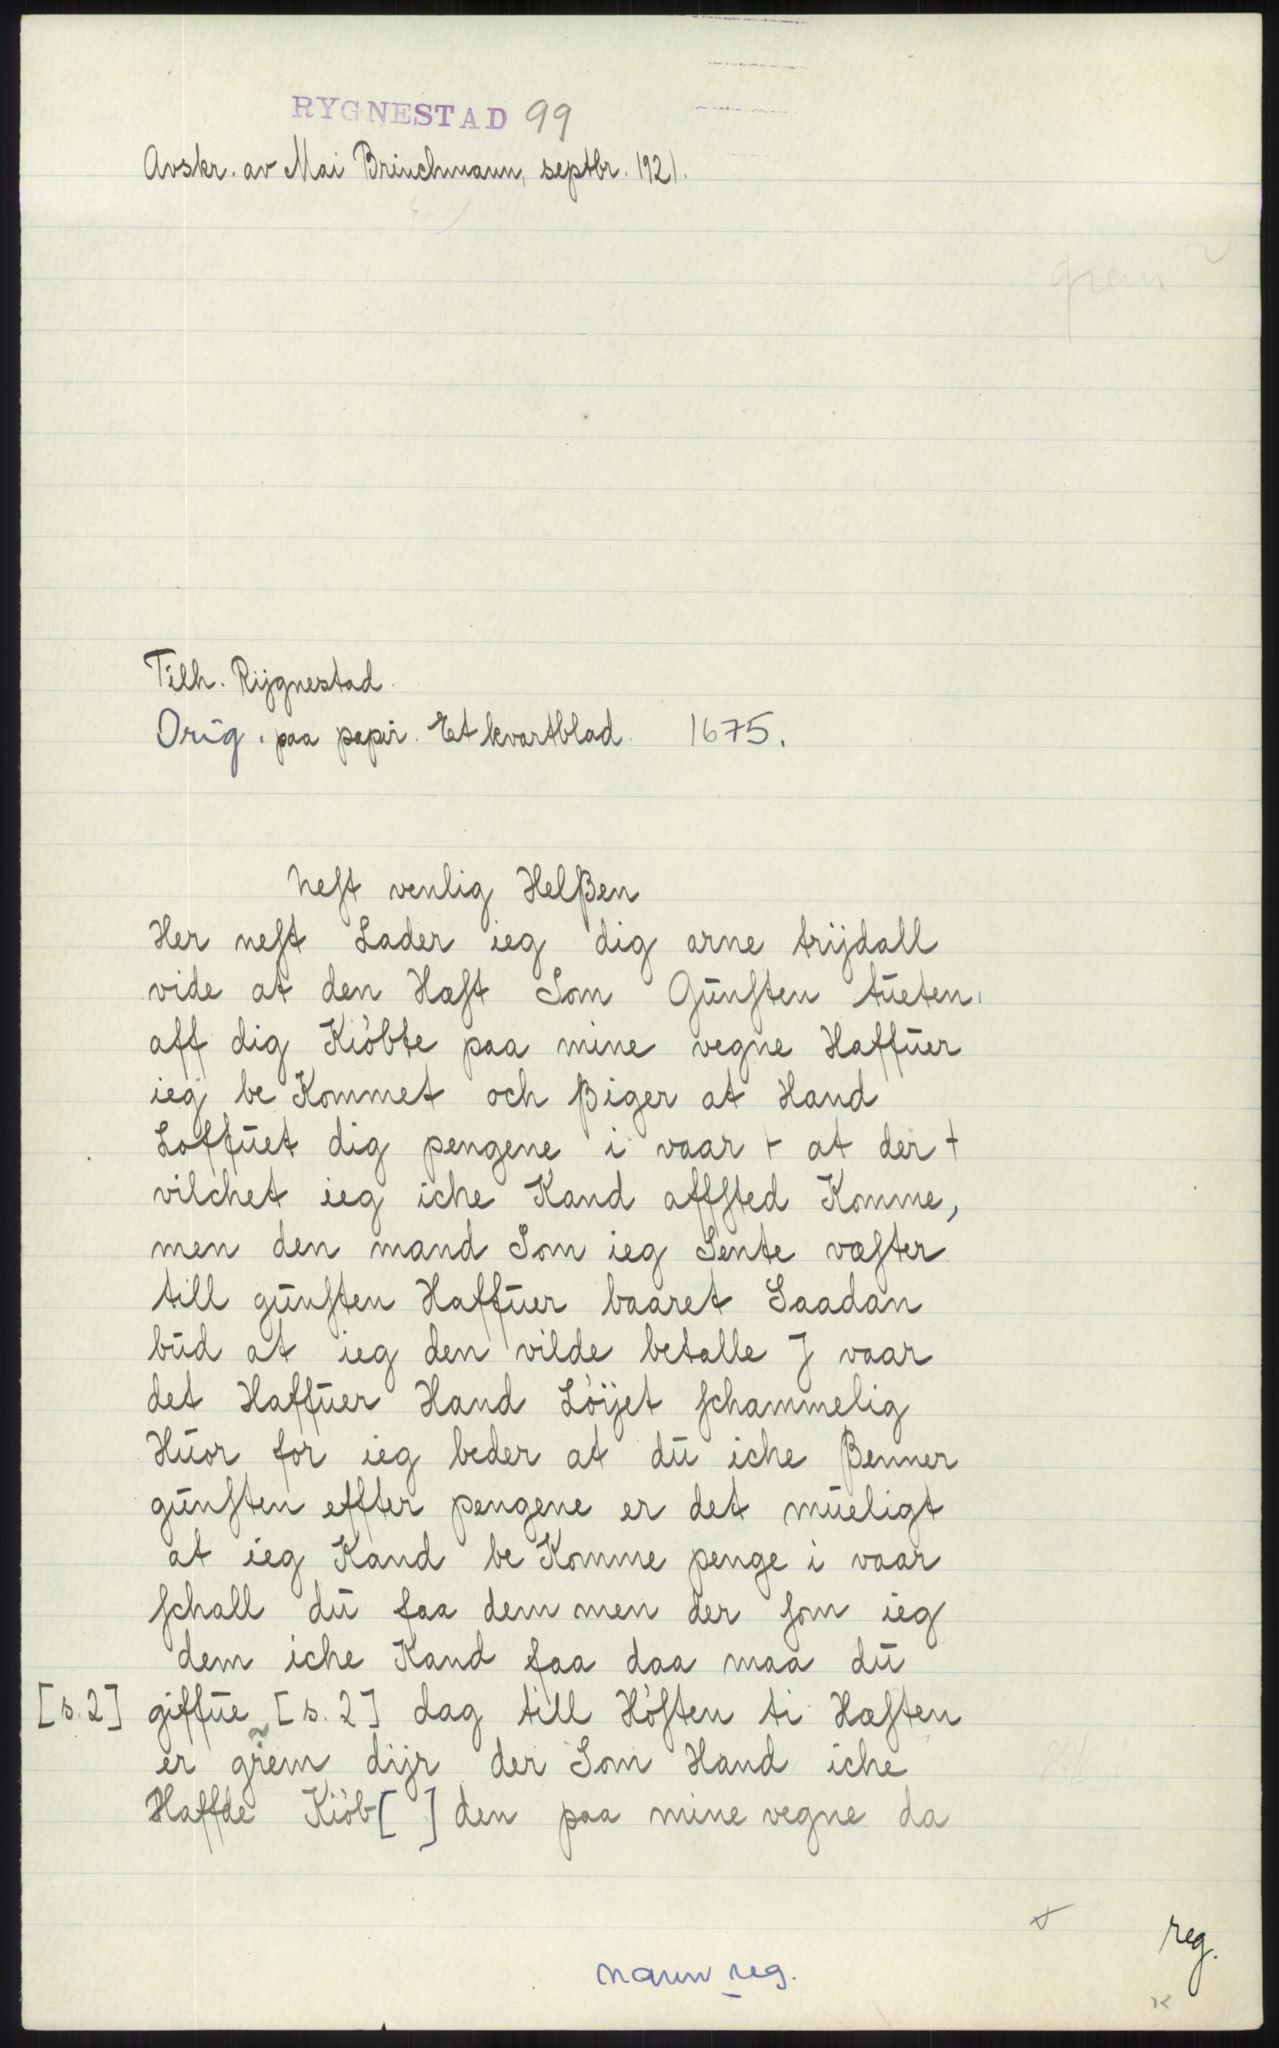 RYGNESTAD 99
Avskr. av Mai Brinchmann, septbr. 1921.
grem
Tilh. Rijgnestad.
Orig. paa papir. Et kvartblad. 1675.
Neſt venlig Helßen
Her neſt Lader ieg dig arne trijdall
vide at den Hæſt Som Gūnſten tūeten
aff dig Kióbte paa mine vegne Haffūer
ieg be Kommet och ßiger at Hand
Loffūet dig pengene i vaar + at der +
vilchet ieg iche Kand affſted Komme,
men den mand Som ieg Sente væſter
till gūnſten Haffūer baaret Saadan
būd at ieg den vilde betalle J vaar
det Haffūer Hand Lóijet ſchammelig
Hūor for ieg beder at dū iche ßenner
gūnſten effter pengene er det mūeligt
at ieg Kand be Komme penge i vaar
ſchall dū faa dem men der ſom ieg
dem iche Kand faa daa maa dū
[s. 2] giffūe [s. 2] dag till Hóſten ti Hæſten
er grem dijr der Som Hand iche
Haffde Kiób[ ] den paa mine vegne da
reg.
navn reg.